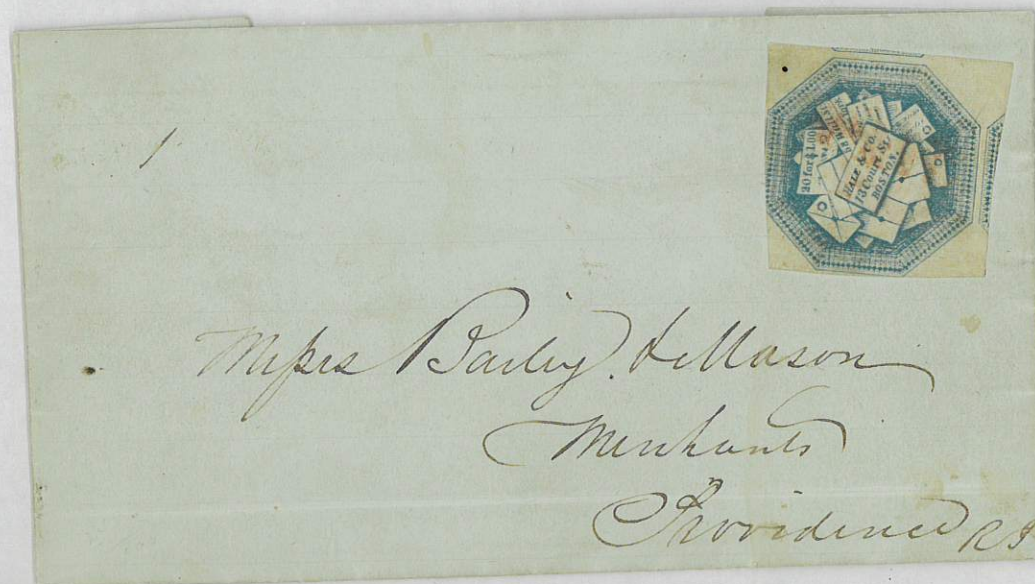 20 for $1.00
HALE & Co.
13 Court St.
BOSTON.
Messrs Bailey & Mason
Merchants
Providence RI